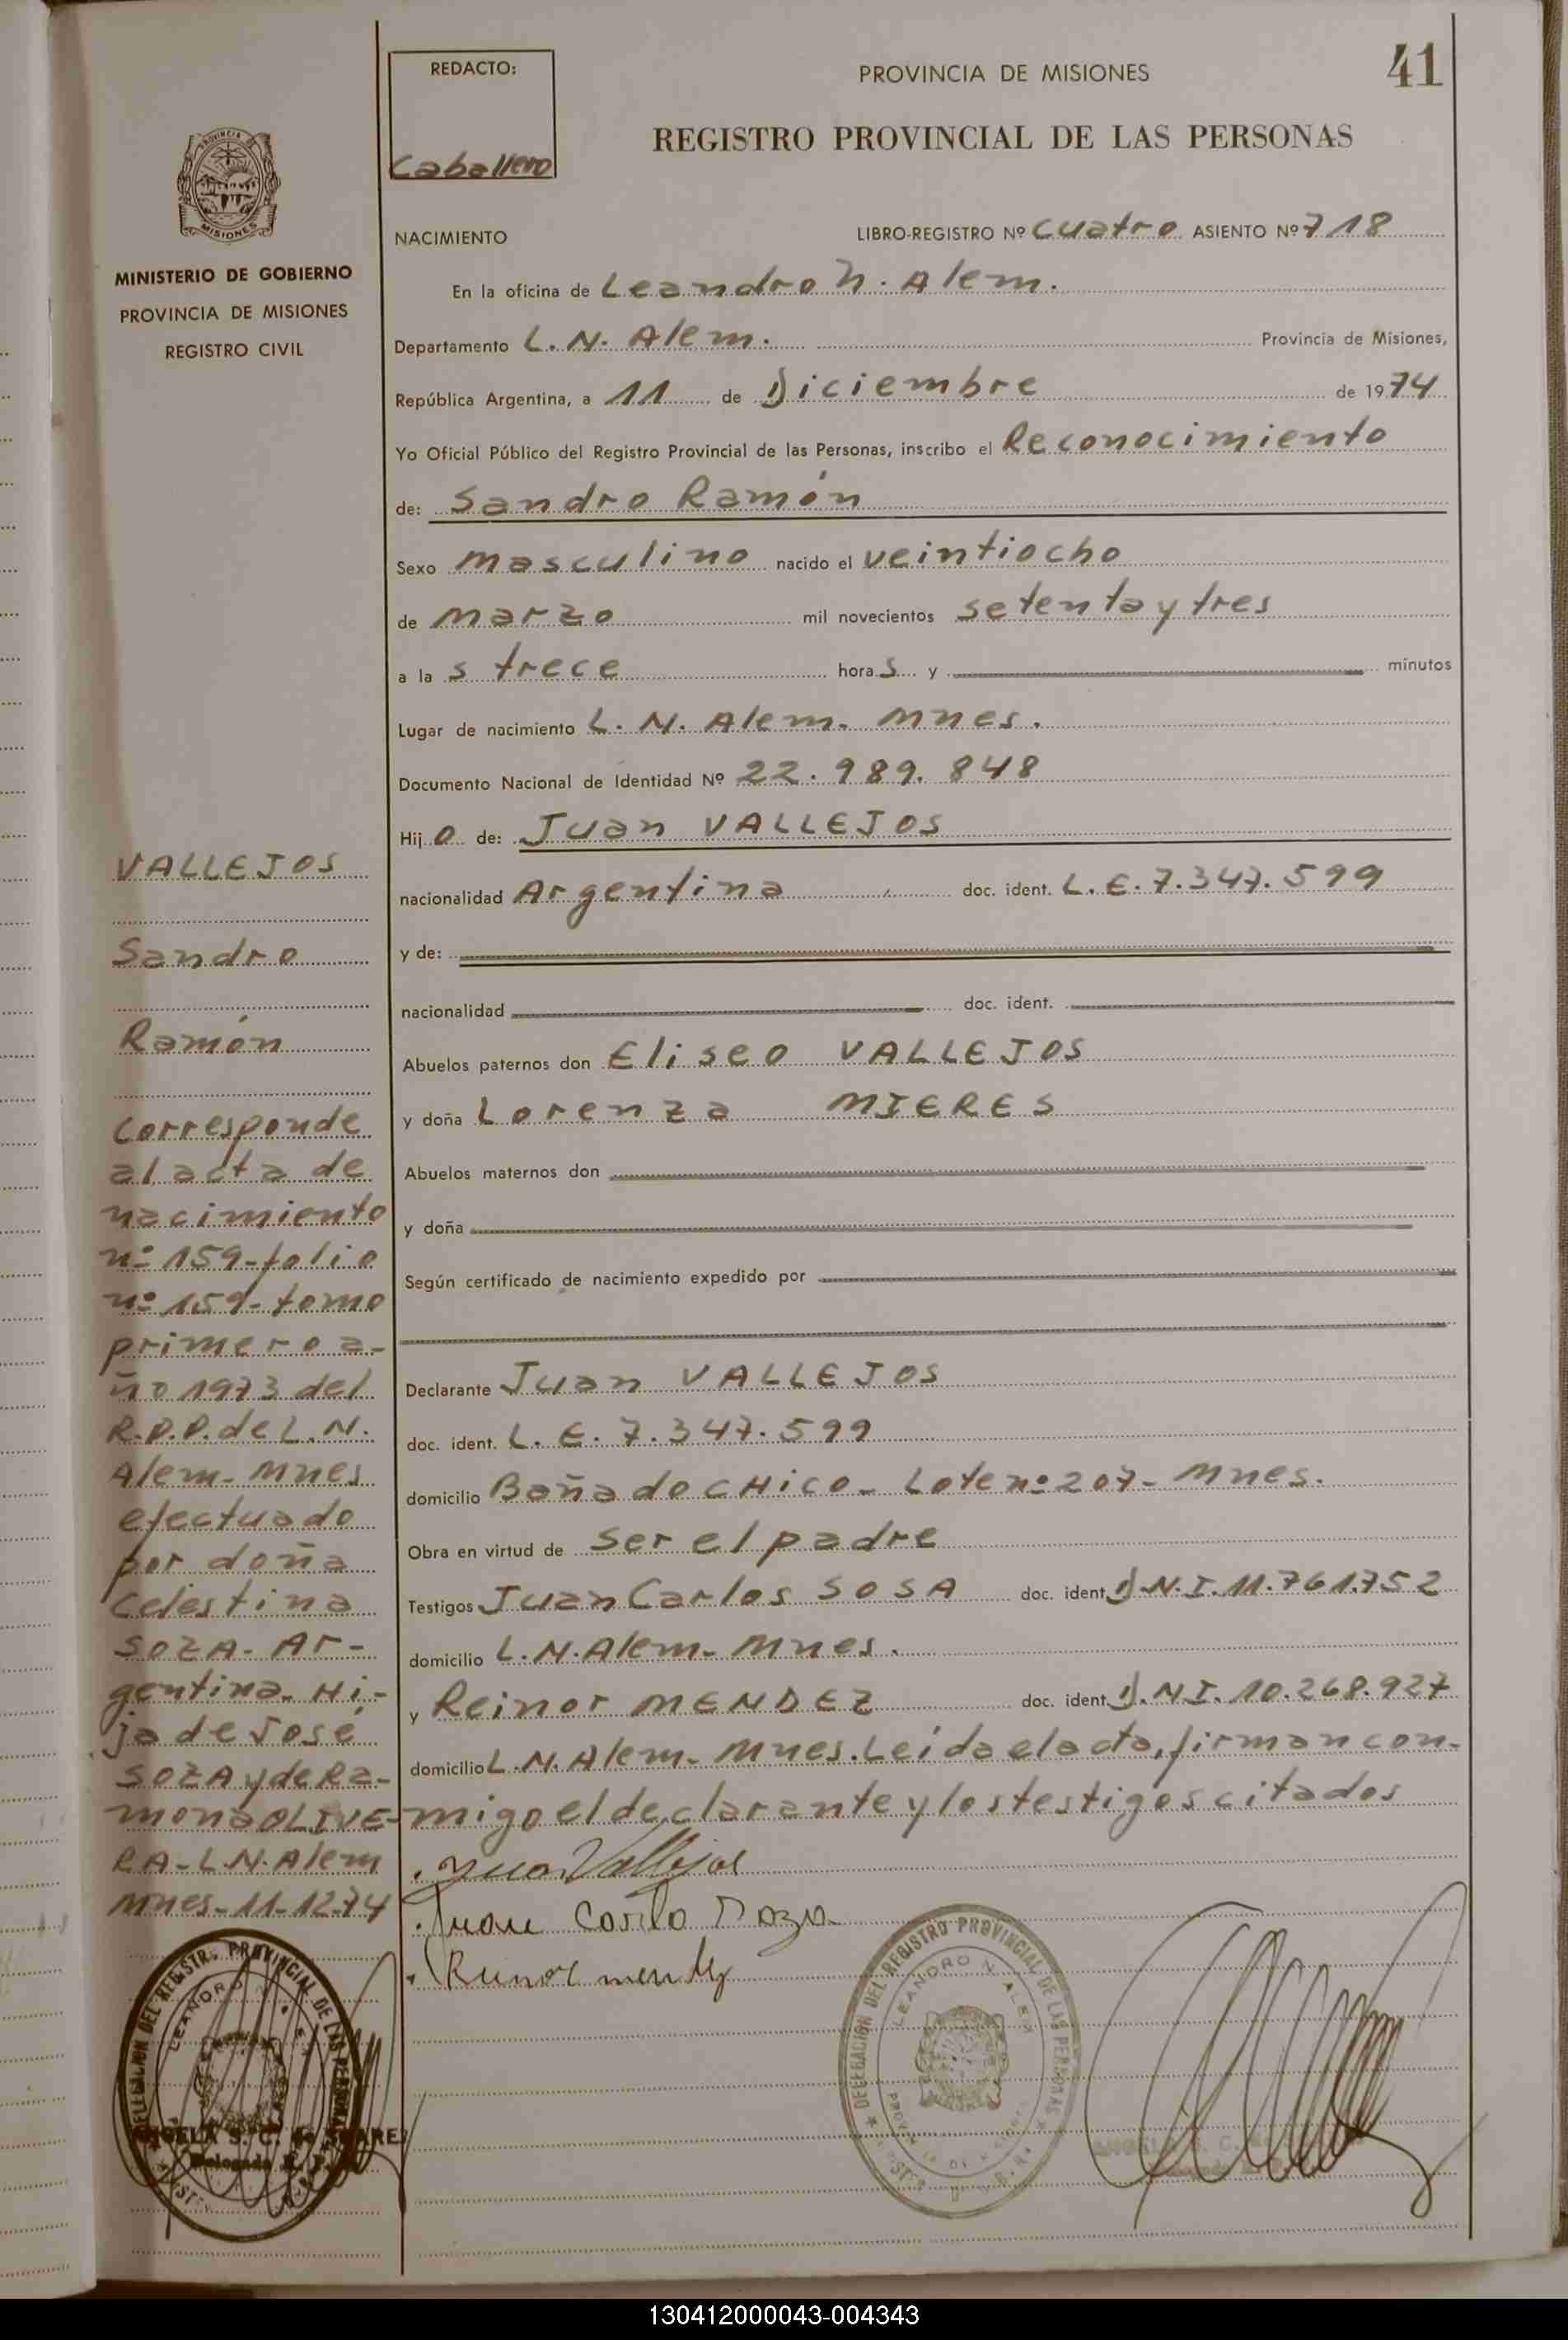 REDACTO:
Caballero
PROVINCIA DE MISIONES
41
REGISTRO PROVINCIAL DE LAS PERSONAS
PROVINCIA
MISIONES
MINISTERIO DE GOBIERNO
PROVINCIA DE MISIONES
REGISTRO CIVIL
NACIMIENTO LIBRO-REGISTRO Nº Cuatro ASIENTO Nº 718
En la oficina de Leandro N. Alem.
Departamento L. N. Alem. Provincia de Misiones,
República Argentina, a 11 de Diciembre de 1974
Yo Oficial Público del Registro Provincial de las Personas, inscribo el Reconocimiento
de: Sandro Ramón
Sexo masculino nacido el veintiocho
de marzo mil novecientos setenta y tres
a la s trece hora s y minutos
Lugar de nacimiento L. N. Alem- Mnes.
Documento Nacional de Identidad Nº 22.989.848
Hij o de: Juan VALLEJOS
nacionalidad Argentina doc. ident. L.E. 7.347.599
y de:
nacionalidad doc. ident.
Abuelos paternos don Eliseo VALLEJOS
y doña Lorenza MIERES
Abuelos maternos don
y doña
Según certificado de nacimiento expedido por
Declarante Juan VALLEJOS
doc. ident. L. E. 7.347.599
domicilio Bañado CHico- Lote nº 207- Mnes.
Obra en virtud de ser el padre
Testigos Juan Carlos SOSA doc. ident. D.N.I. 11.761.752
domicilio L.N. Alem- Mnes.
y Reinor MENDEZ doc. ident. D.N.I. 10.268.927
domicilio L.N. Alem- Mnes. Leída el acta, firman con-
migo el declarante y los testigos citados
Juan Vallejos
VALLEJOS
Sandro
Ramón
Corresponde
al acta de
nacimiento
nº 159-folio
nº 159- tomo
primero a-
ño 1973 del
R.P.P. de L.N.
Alem- Mnes
efectuado
por doña
Celestina
SOZA- Ar-
gentina- Hi-
ja de José
SOZA y de Ra-
mona OLIVE-
RA-L.N. Alem
Mnes- 11-12-74
DELEGACION DEL REGISTRO PROVINCIAL DE LAS PERSONAS
LEANDRO N. ALEM
ANGELA S. C. de
Delegada
DELEGACION DEL REGISTRO PROVINCIAL DE LAS PERSONAS
LEANDRO N. ALEM
130412000043-004343